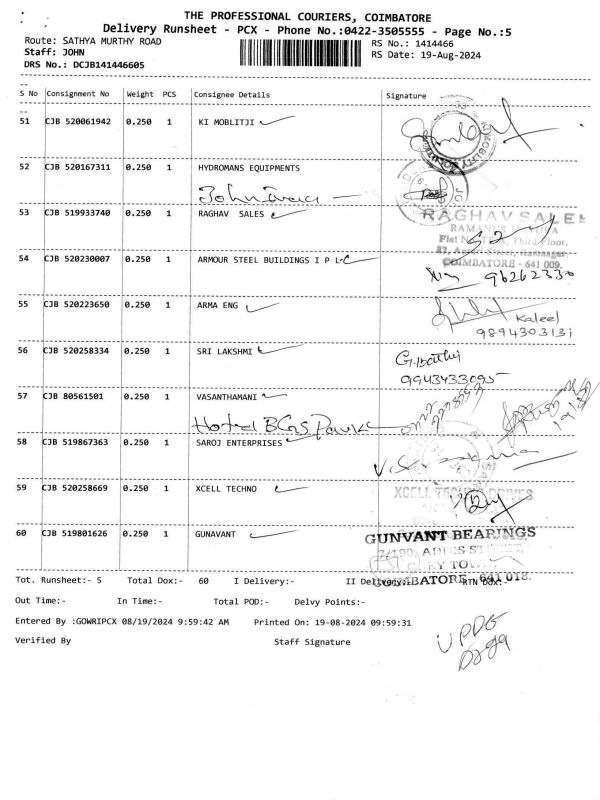 THE PROFESSIONAL COURIERS, COIMBATORE
Delivery Runsheet - PCX - Phone No.:0422-3505555 - Page No.:5
Route: SATHYA MURTHY ROAD RS No.: 1414466
Staff: JOHN RS Date: 19-Aug-2024
DRS No.: DCJB141446605
S No Consignment No Weight PCS Consignee Details Signature
51 CJB 520061942 0.250 1 KI MOBLITJI
52 CJB 520167311 0.250 1 HYDROMANS EQUIPMENTS
53 CJB 519933740 0.250 1 RAGHAV SALES
RAGHAV SALES
Flat Third Floor,
COIMBATORE - 641 009.
54 CJB 520230007 0.250 1 ARMOUR STEEL BUILDINGS I P L
96262330
55 CJB 520223650 0.250 1 ARMA ENG
Kaleel
9894303131
56 CJB 520258334 0.250 1 SRI LAKSHMI
9943433095
57 CJB 80561501 0.250 1 VASANTHAMANI
Hotel BGS
58 CJB 519867363 0.250 1 SAROJ ENTERPRISES
59 CJB 520258669 0.250 1 XCELL TECHNO
XCELL
60 CJB 519801626 0.250 1 GUNAVANT
GUNVANT BEARINGS
Tot. Runsheet:- 5 Total Dox:- 60 I Delivery:- II Delivery:- RTN Dox:-
Out Time:- In Time:- Total POD:- Delvy Points:-
Entered By :GOWRIPCX 08/19/2024 9:59:42 AM Printed On: 19-08-2024 09:59:31
Verified By Staff Signature